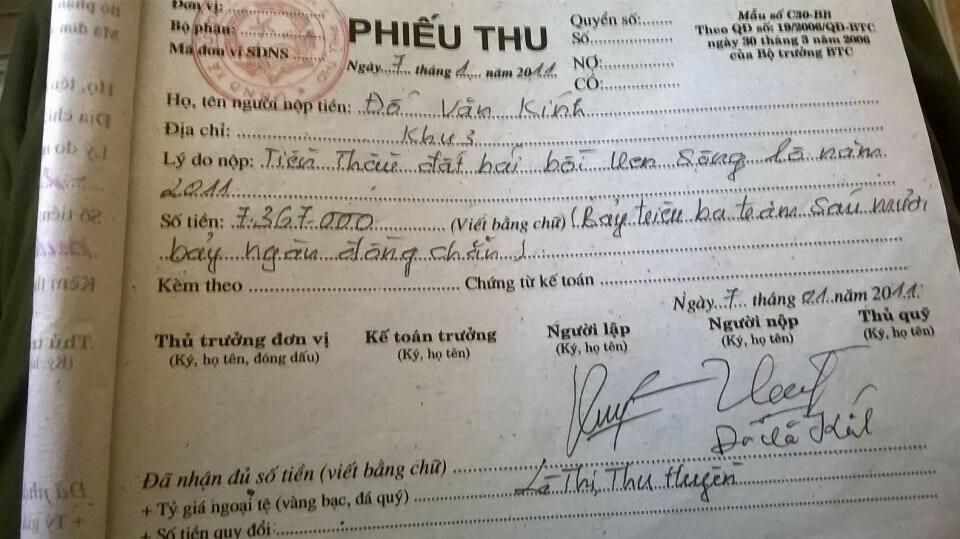 Đơn vị:
Bộ phận:
Mã đơn vị SDNS
PHIẾU THU
Ngày 7 tháng 1 năm 2011
Quyển số:
Số
NỢ:
CÓ:
Mẫu số C30-BH
Theo QĐ số: 19/2006/QĐ-BTC
ngày 30 tháng 3 năm 2006
của Bộ trưởng BTC
Họ, tên người nộp tiền: Đỗ Văn Kính
Địa chỉ: Khu 3
Lý do nộp: Tiền Thuê đất bãi bồi ven Sông Lô năm
2011
Số tiền: 7.367.000 (Viết bằng chữ) (Bảy triệu ba trăm Sáu mươi
bảy ngàn đồng chẵn)
Kèm theo Chứng từ kế toán
Ngày 7 tháng 01 năm 2011
Thủ trưởng đơn vị
(Ký, họ tên, đóng dấu)
Kế toán trưởng
(Ký, họ tên)
Người lập
(Ký, họ tên)
Người nộp
(Ký, họ tên)
Thủ quỹ
(Ký, họ tên)
Đã nhận đủ số tiền (viết bằng chữ)
Lê Thị Thu Huyền
+ Tỷ giá ngoại tệ (vàng bạc, đá quý)
+ Số tiền quy đổi: